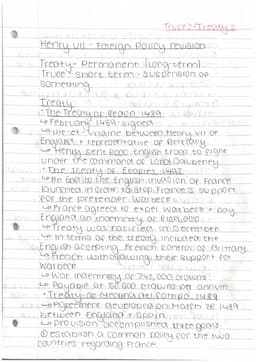 Truce's/Treaty's
Henry VII - Foreign Policy revision
Treaty - Permanent (long term)
Truce - Short term - suspension of
something
Treaty
• The Treaty of Redon 1489
↳ February 1489 - signed
↳ Between Henry VII of
England + representative of Brittany
↳ Henry sent 6000 English troop to fight
under the command of Lord Daubeney
• The Treaty of Etaples 1492
↳ An End to the English invasion of France
launched in order to stop France's support
for the pretender Warbeck
↳ France agreed to expel Warbeck + pay
England an indemnity of £159,000
↳ Treaty was ratified in December
↳ In terms of the treaty included the
English accepting French control of Brittany
↳ French withdrawing their support for
Warbeck
↳ War indemnity of 742,000 crowns
↳ Payable at 50,000 crowns per annum
• Treaty of Medina del Campo, 1489
↳ Agreement developed on March 26 1489
between England + Spain
↳ Provision accomplished three goals
① establish a common policy for the two
countries regarding France